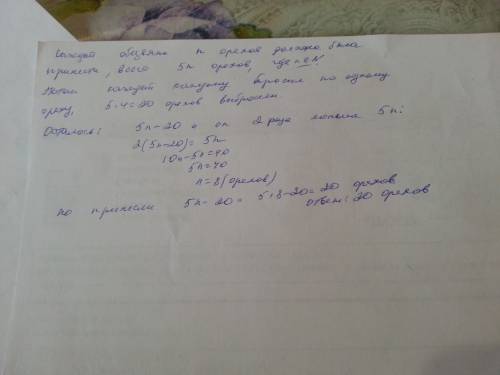 Каждая обезьяна n орехов должна была
принести, всего 5n орехов, где n∈N
Потом каждая каждому бросил по одному
ореху, 5·4=20 орехов выбросили.
Осталось: 5n-20 и он 2 раза меньше 5n:
2(5n-20)=5n
10n-5n=40
5n=40
n=8(орехов)
но принесли 5n-20= 5·8-20=20 орехов
ответ: 20 орехов